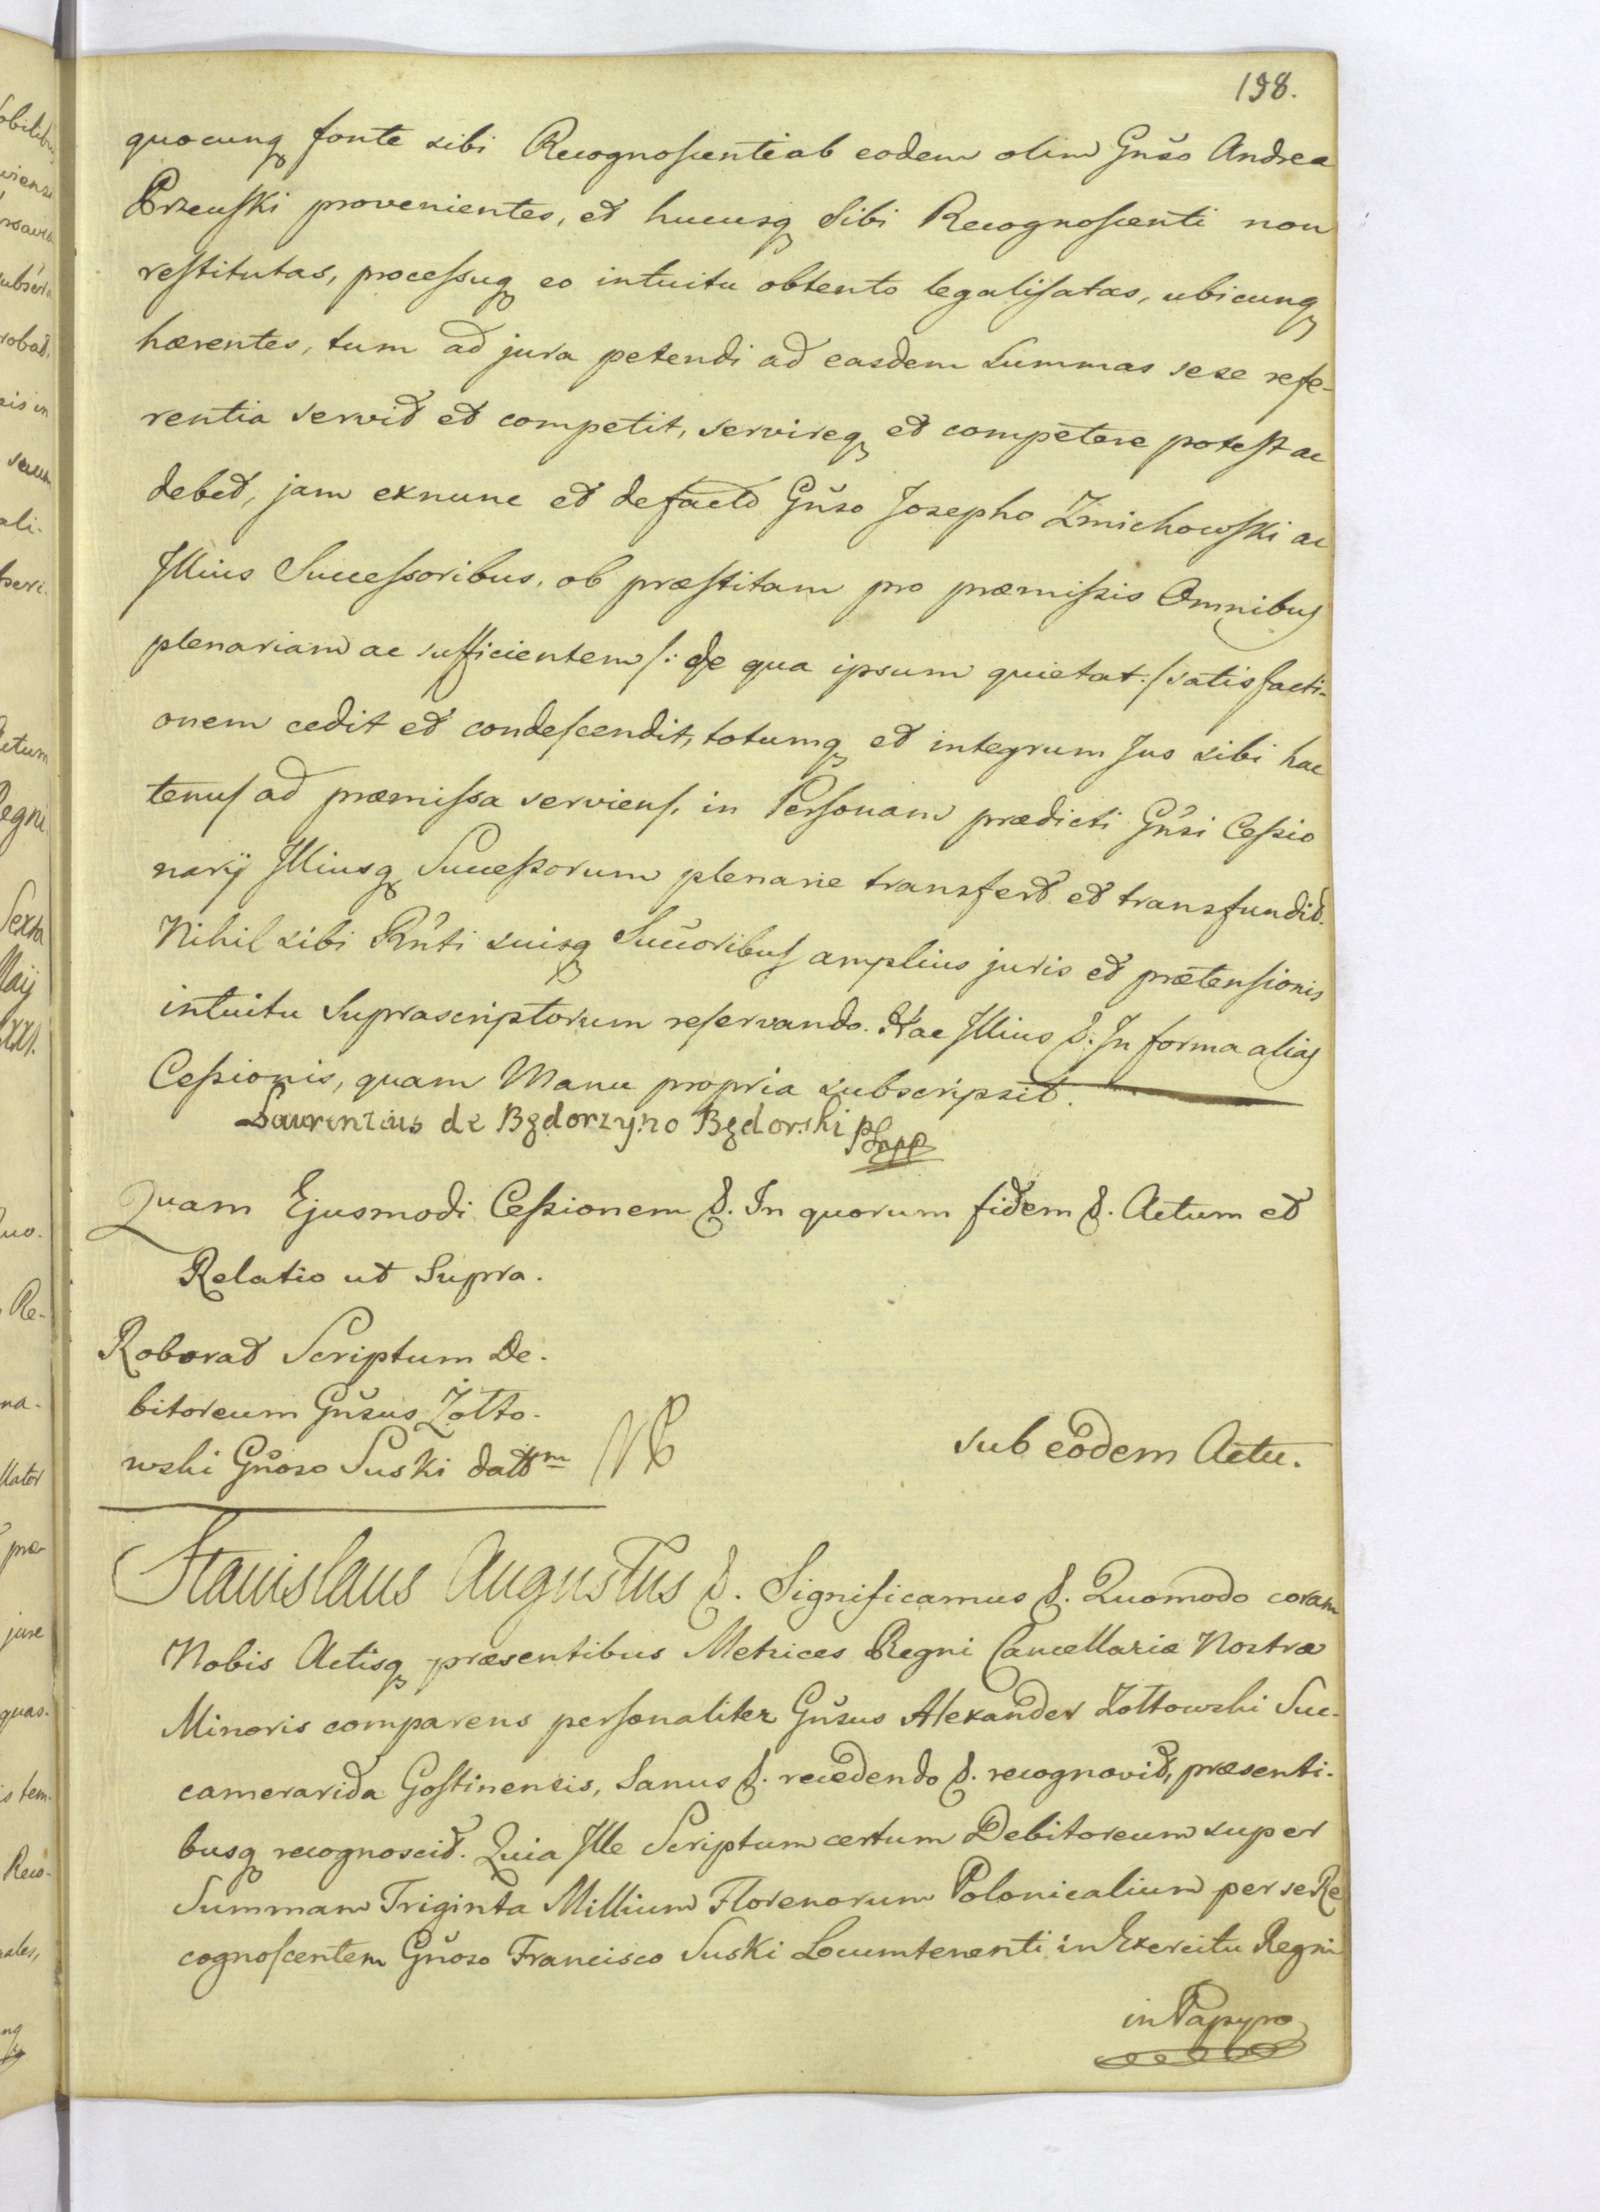 198.
quocunq fonte sibi Recognoscenti ab eodem olim Gnŏso Andrea
Brzeuski provenientes, et hucusq sibi Recognoscenti non
restitutas, processuq eo intuitu obtento legalisatas, ubicunq
hærentes, tum ad jura petendi ad easdem Summas sese refe-
rentia servit et competit, servireq et competere potest ac
debet, jam exnunc et defacto Gnŏso Josepho Zmichowski ac
Illius Successoribus, ob præstitam pro præmissis Omnibus
plenariam ac sufficientem /: de qua ipsum quietat :/ satisfacti-
onem cedit et condescendit, totumq et integrum Jus sibi hac
tenus ad præmissa serviens, in Personam prædicti Gnŏsi Cessio
narij Illiusq Successorum plenarie transfert et transfundit.
Nihil sibi Rnti suisq Succoribus amplius juris et prætensionis
intuitu Suprascriptorum reservando. Hac Illius &. In forma alias
Cessionis, quam Manu propria subscripsit.
Laurentius de Będorzyno Będorski
Quam Ejusmodi Cessionem &. In quorum fidem &. Actum et
Relatio ut Supra.
Roborat Scriptum De-
bitoreum Gnŏsus Żołto-
wski Gnŏso Suski dattm
sub eodem Actu.
Stanislaus Augustus &. Significamus &. Quomodo coram
Nobis Actisq præsentibus Metrices Regni Cancellariæ Nostræ
Minoris comparens personaliter Gnŏsus Alexander Żołtowski Suc-
camerarida Gostinensis, Sanus &. recedendo &. recognovit, præsenti-
busq recognoscit. Quia Ille Scriptum certum Debitoreum super
Summam Triginta Millium Florenorum Polonicalium per se Re
cognoscentem Gnŏso Francisco Suski Locumtenenti in Exercitu Regni
in Papyro